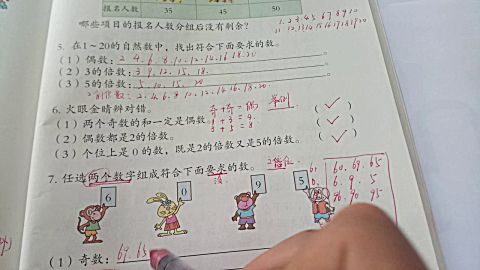 报名人数 35 45 50
哪些项目的报名人数分组后没有剩余?
1.2.3.4.5.6.7.8.9.10
11.12.13.14.15.16.17.18.19.20
5. 在1~20的自然数中,找出符合下面要求的数。
(1)偶数: 2.4.6.8.10.12.14.16.18.20
(2)3的倍数: 3.9.12.15.18.
(3)5的倍数: 5.10.15.20
2.4.6.8.10.12.14.16.18.20
6. 火眼金睛辨对错。 奇+奇=偶 举例
(1)两个奇数的和一定是偶数。 1+3=4 (✓)
(2)偶数都是2的倍数。 3+5=8 (✓)
(3)个位上是0的数,既是2的倍数又是5的倍数。 (✓)
7. 任选两个数字组成符合下面要求的数。
6 0 9 5
60.69.65
6.9.5
96.90.95
(1)奇数: 69.65